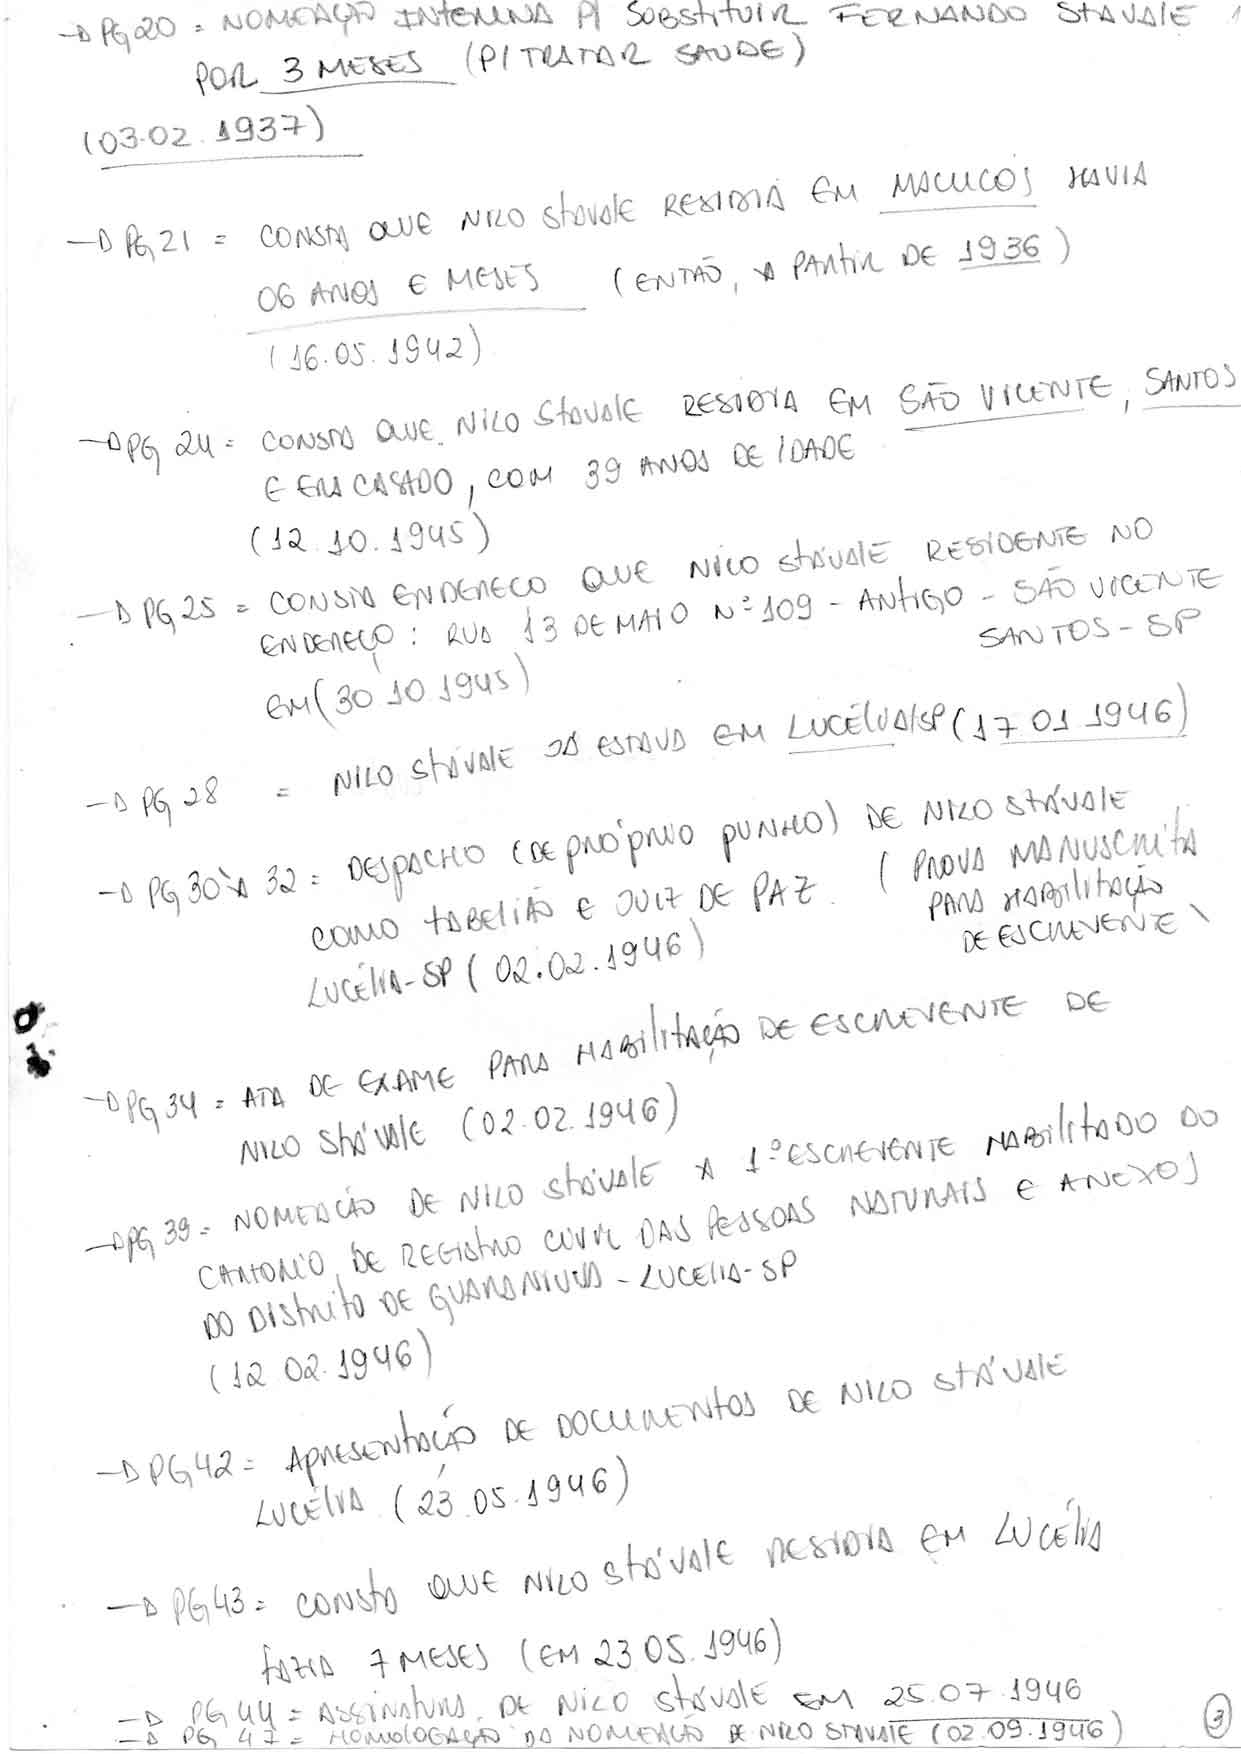 → PG 20 = NOMEAÇÃO INTERINA P/ SUBSTITUIR FERNANDO STAVALE
POR 3 MESES (P/ TRATAR SAUDE)
(03.02.1937)
→ PG 21 = CONSTA QUE NILO STAVALE RESIDIA EM MACUCOS HAVIA
06 ANOS E MESES (ENTÃO, A PARTIR DE 1936)
(16.05.1942)
→ PG 24 = CONSTA QUE NILO STAVALE RESIDIA EM SÃO VICENTE, SANTOS
E ERA CASADO, COM 39 ANOS DE IDADE
(12.10.1945)
→ PG 25 = CONSTA ENDERECO QUE NILO STÁVALE RESIDENTE NO
ENDEREÇO: RUA 13 DE MAIO Nº 109 - ANTIGO - SÃO VICENTE
SANTOS - SP
EM (30.10.1945)
→ PG 28 = NILO STÁVALE JÁ ESTAVA EM LUCÉLIA/SP (17 01 1946)
→ PG 30 À 32 = DESPACHO (DE PRÓPRIO PUNHO) DE NILO STÁVALE
COMO TABELIÃO E JUIZ DE PAZ. (PROVA MANUSCRITA
PARA HABILITAÇÃO
DE ESCREVENTE)
LUCÉLIA-SP (02.02.1946)
→ PG 34 = ATA DE EXAME PARA HABILITAÇÃO DE ESCREVENTE DE
NILO STÁVALE (02.02.1946)
→ PG 39 = NOMEACÃO DE NILO STÁVALE A 1º ESCREVENTE HABILITADO DO
CARTORIO DE REGISTRO CIVIL DAS PESSOAS NATURAIS E ANEXOS
DO DISTRITO DE GUARANIUVA - LUCELIA-SP
(12 02.1946)
→ PG 42 = APRESENTAÇÃO DE DOCUMENTOS DE NILO STÁVALE
LUCÉLIA (23.05.1946)
→ PG 43 = CONSTA QUE NILO STÁVALE RESIDIA EM LUCÉLIA
FAZIA 7 MESES (EM 23 05.1946)
→ PG 44 = ASSINATURA DE NILO STÁVALE EM 25.07.1946
→ PG 47 = HOMOLOGAÇÃO DA NOMEAÇÃO DE NILO STAVALE (02.09.1946)
3